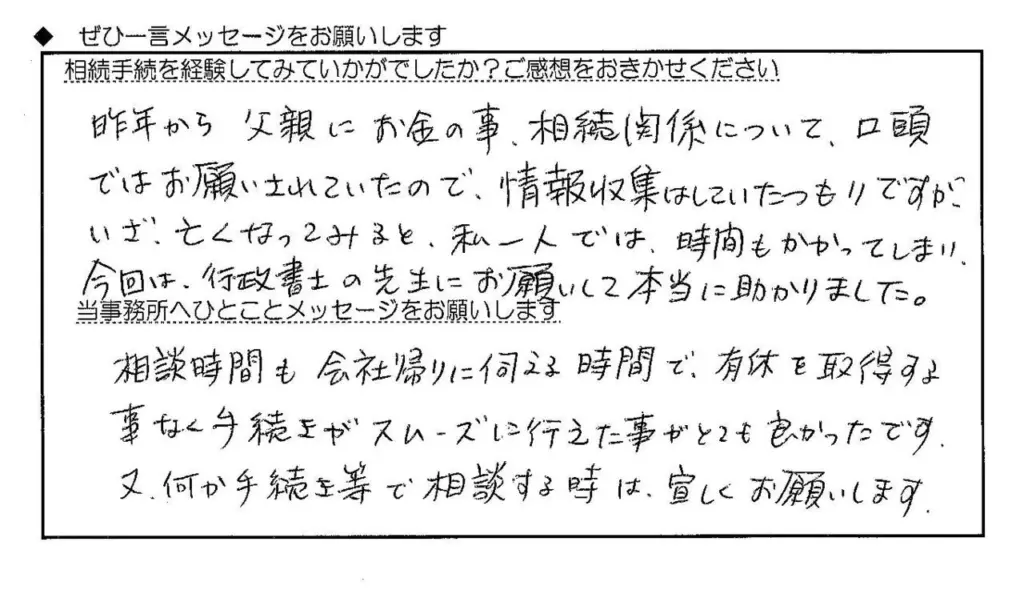 ◆ ぜひ一言メッセージをお願いします
相続手続を経験してみていかがでしたか？ご感想をおきかせください
昨年から 父親に お金の事、相続関係について、口頭
ではお願いされていたので、情報収集はしていたつもりですが、
いざ、亡くなってみると、私一人では、時間もかかってしまい、
今回は、行政書士の先生にお願いして本当に助かりました。
当事務所へひとことメッセージをお願いします
相談時間も 会社帰りに伺える時間で、有休を取得する
事なく手続きがスムーズに行えた事がとても良かったです。
又、何か手続き等で相談する時は、宜しくお願いします。